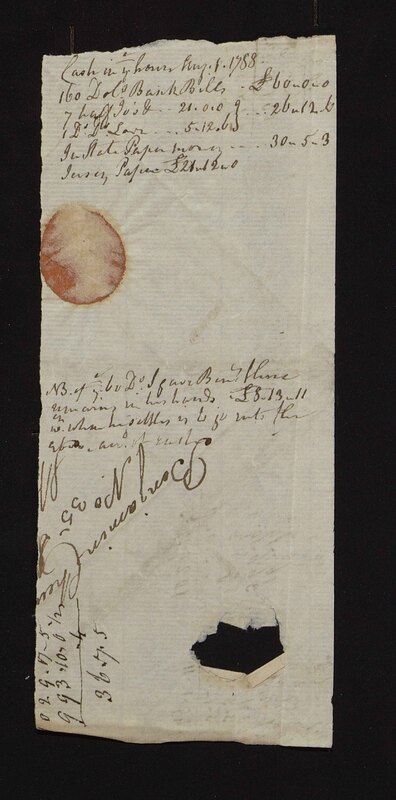 Cash in ye house Augt. 1. 1788
160 Dolrs. Bank Bills - £60..0..0
7 half Jos's - 21..0..0 } - 26..12..6
1 Do. Do. Low - 5..12..6
In State Paper money - 30..5..3
Jersey Paper £21..12..0
NB. of ye 60 Do. I gave Benj. there
remains in his hands £8..13..11
wh. when he settles is to go into the
above acct. of cash
Benjamin
No 35
36..7..5